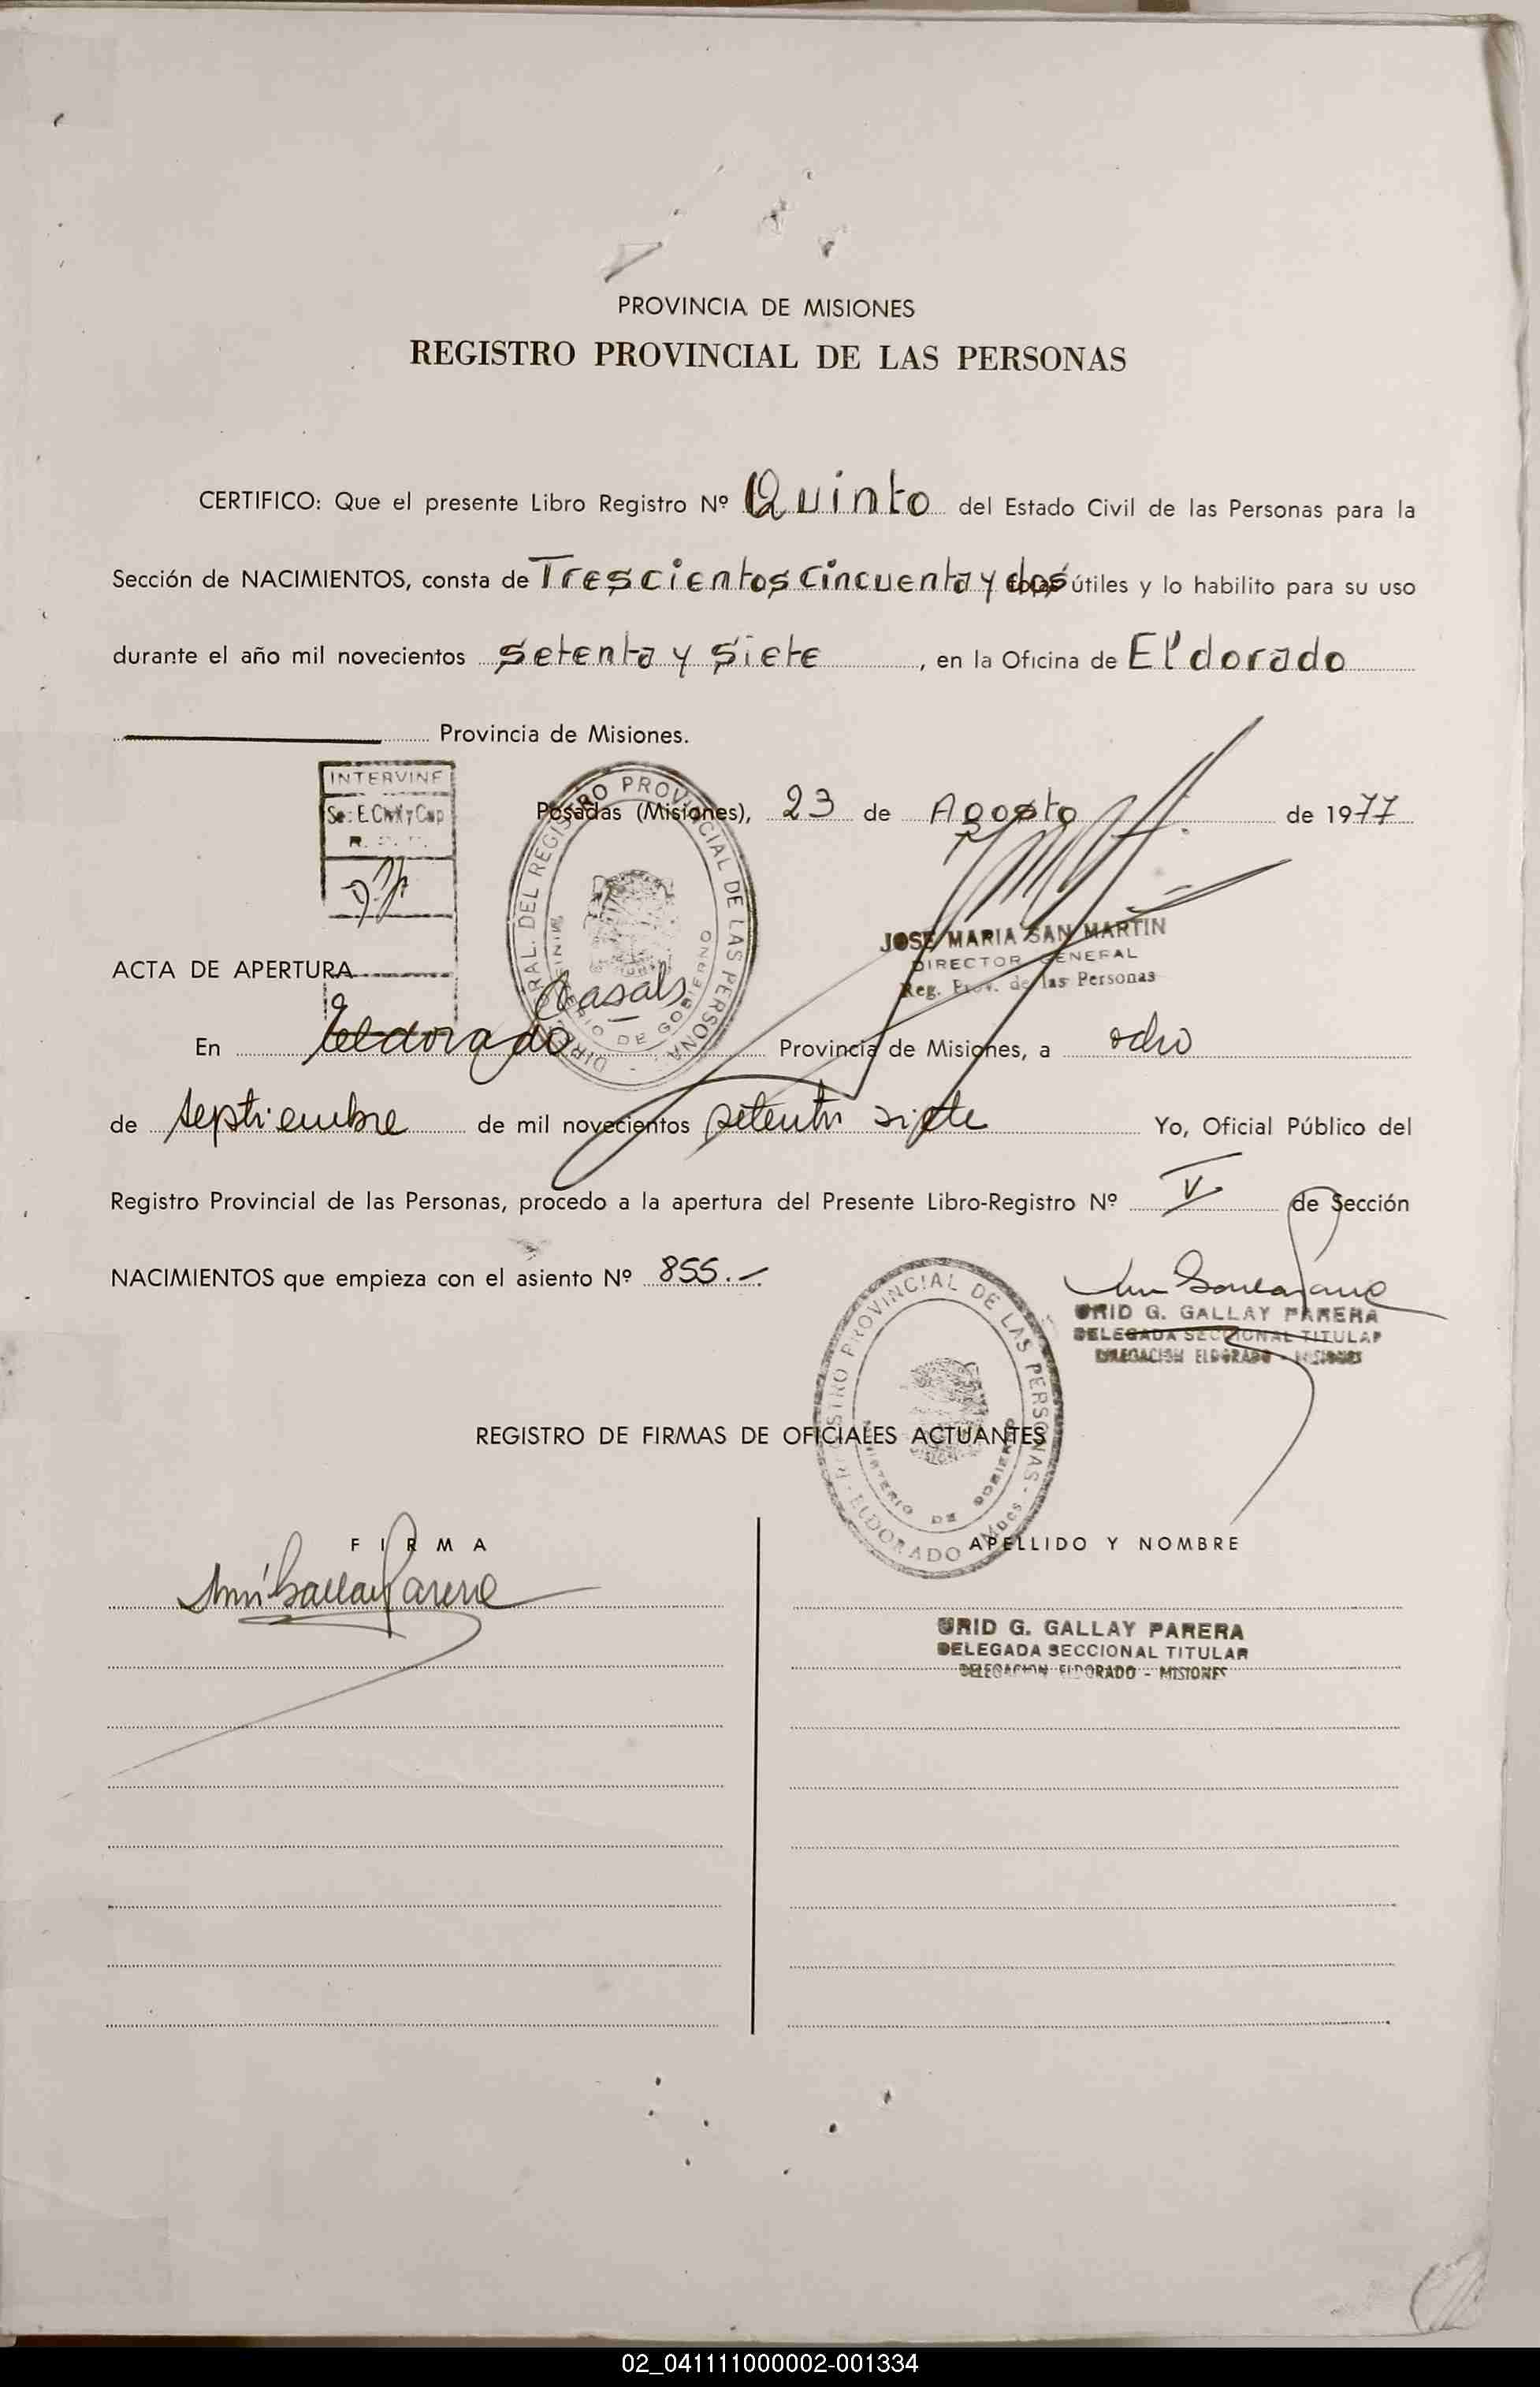 PROVINCIA DE MISIONES
REGISTRO PROVINCIAL DE LAS PERSONAS
CERTIFICO: Que el presente Libro Registro Nº Quinto del Estado Civil de las Personas para la
Sección de NACIMIENTOS, consta de Trescientos cincuenta y dos útiles y lo habilito para su uso
durante el año mil novecientos setenta y siete, en la Oficina de Eldorado
Provincia de Misiones.
INTERVINE
Posadas (Misiones), 23 de Agosto de 1977
DIRECCION GRAL. DEL REGISTRO PROVINCIAL DE LAS PERSONAS
MINISTERIO DE GOBIERNO
JOSE MARIA SAN MARTIN
DIRECTOR GENERAL
Reg. Prov. de las Personas
ACTA DE APERTURA
Casals
En Eldorado Provincia de Misiones, a ocho
de septiembre de mil novecientos setenta siete Yo, Oficial Público del
Registro Provincial de las Personas, procedo a la apertura del Presente Libro-Registro Nº V de Sección
NACIMIENTOS que empieza con el asiento Nº 855.-
URID G. GALLAY PARERA
DELEGADA SECCIONAL TITULAR
DELEGACION ELDORADO - MISIONES
REGISTRO PROVINCIAL DE LAS PERSONAS - ELDORADO Mnes
MINISTERIO DE GOBIERNO
REGISTRO DE FIRMAS DE OFICIALES ACTUANTES
FIRMA APELLIDO Y NOMBRE
URID G. GALLAY PARERA
DELEGADA SECCIONAL TITULAR
DELEGACION ELDORADO - MISIONES
02_041111000002-001334